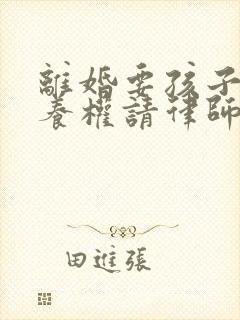 離婚要孩子
養權請律師
田進張